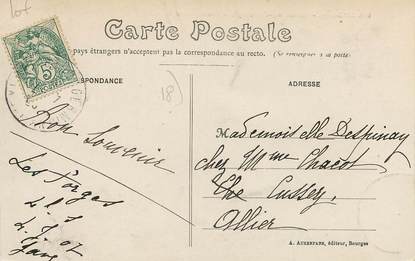 Carte Postale
pays étrangers n'acceptent pas la correspondance au recto. (Se renseigner à la poste)
RESPONDANCE
ADRESSE
5
18)
Bon Souvenir
Les Forges
Mademoiselle Despinay
chez Mme Chacot
Cussey,
Allier
A. AUXENFANS, éditeur, Bourges